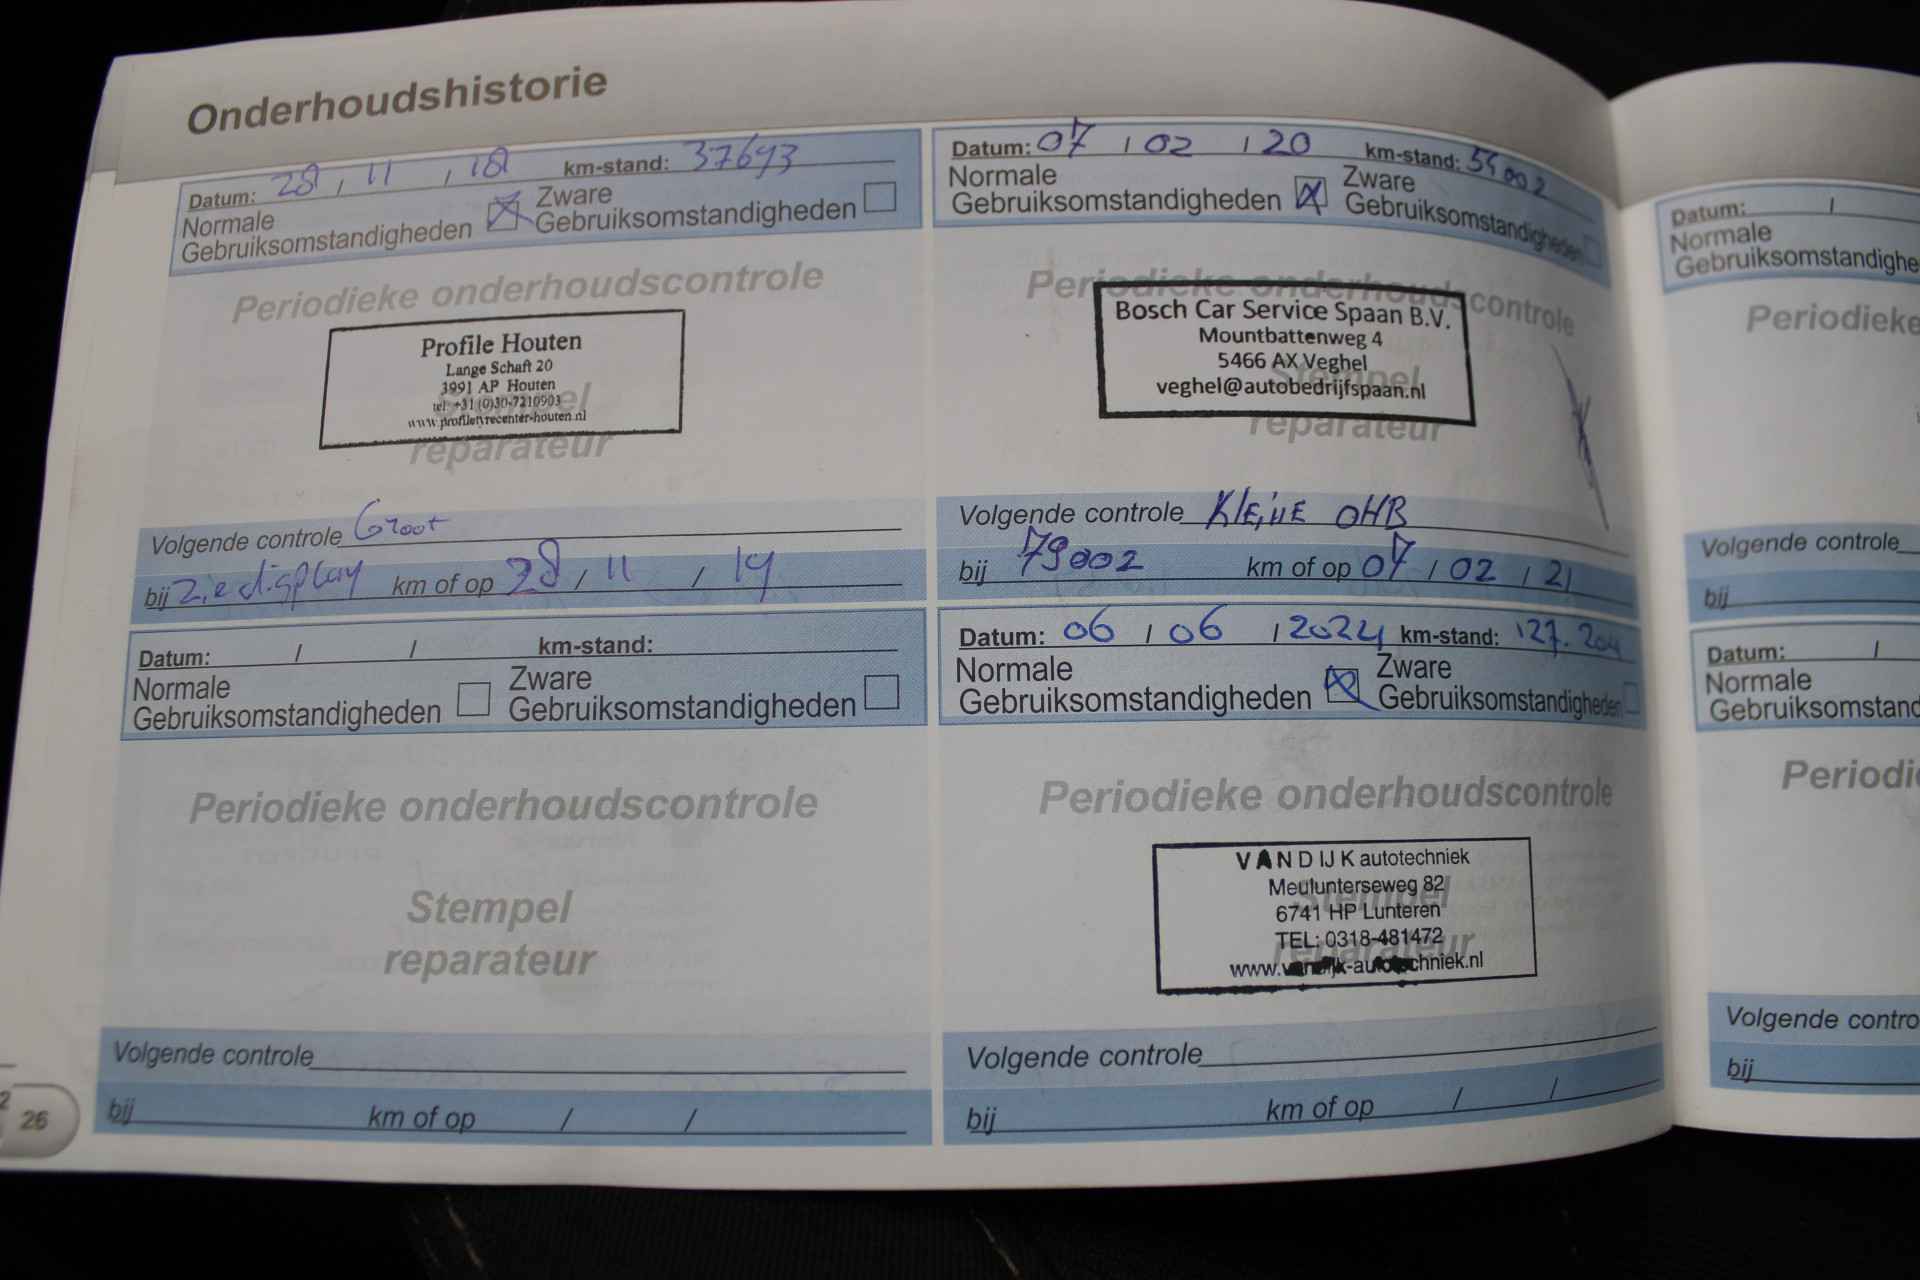 Onderhoudshistorie
Datum: 28 / 11 / 18 km-stand: 37693
Normale Gebruiksomstandigheden Zware Gebruiksomstandigheden
Periodieke onderhoudscontrole
Profile Houten
Lange Schaft 20
3991 AP Houten
tel: +31 (0)30-7210903
www.profiletyrecenter-houten.nl
Stempel
reparateur
Volgende controle Groot
bij Zie display km of op 28 / 11 / 19
Datum: / / km-stand:
Normale Gebruiksomstandigheden Zware Gebruiksomstandigheden
Periodieke onderhoudscontrole
Stempel
reparateur
Volgende controle
bij km of op / /
26
Datum: 07 / 02 / 20 km-stand: 54002
Normale Gebruiksomstandigheden Zware Gebruiksomstandigheden
Periodieke onderhoudscontrole
Bosch Car Service Spaan B.V.
Mountbattenweg 4
5466 AX Veghel
veghel@autobedrijfspaan.nl
Stempel
reparateur
Volgende controle KLEINE OHB
bij 79002 km of op 07 / 02 / 21
Datum: 06 / 06 / 2024 km-stand: 127.204
Normale Gebruiksomstandigheden Zware Gebruiksomstandigheden
Periodieke onderhoudscontrole
VAN DIJK autotechniek
Meulunterseweg 82
6741 HP Lunteren
TEL: 0318-481472
www.vandijk-autotechniek.nl
Stempel
reparateur
Volgende controle
bij km of op / /
Datum: /
Normale
Gebruiksomstandighe
Periodieke
Volgende controle
bij
Datum: /
Normale
Gebruiksomstand
Periodi
Volgende contro
bij